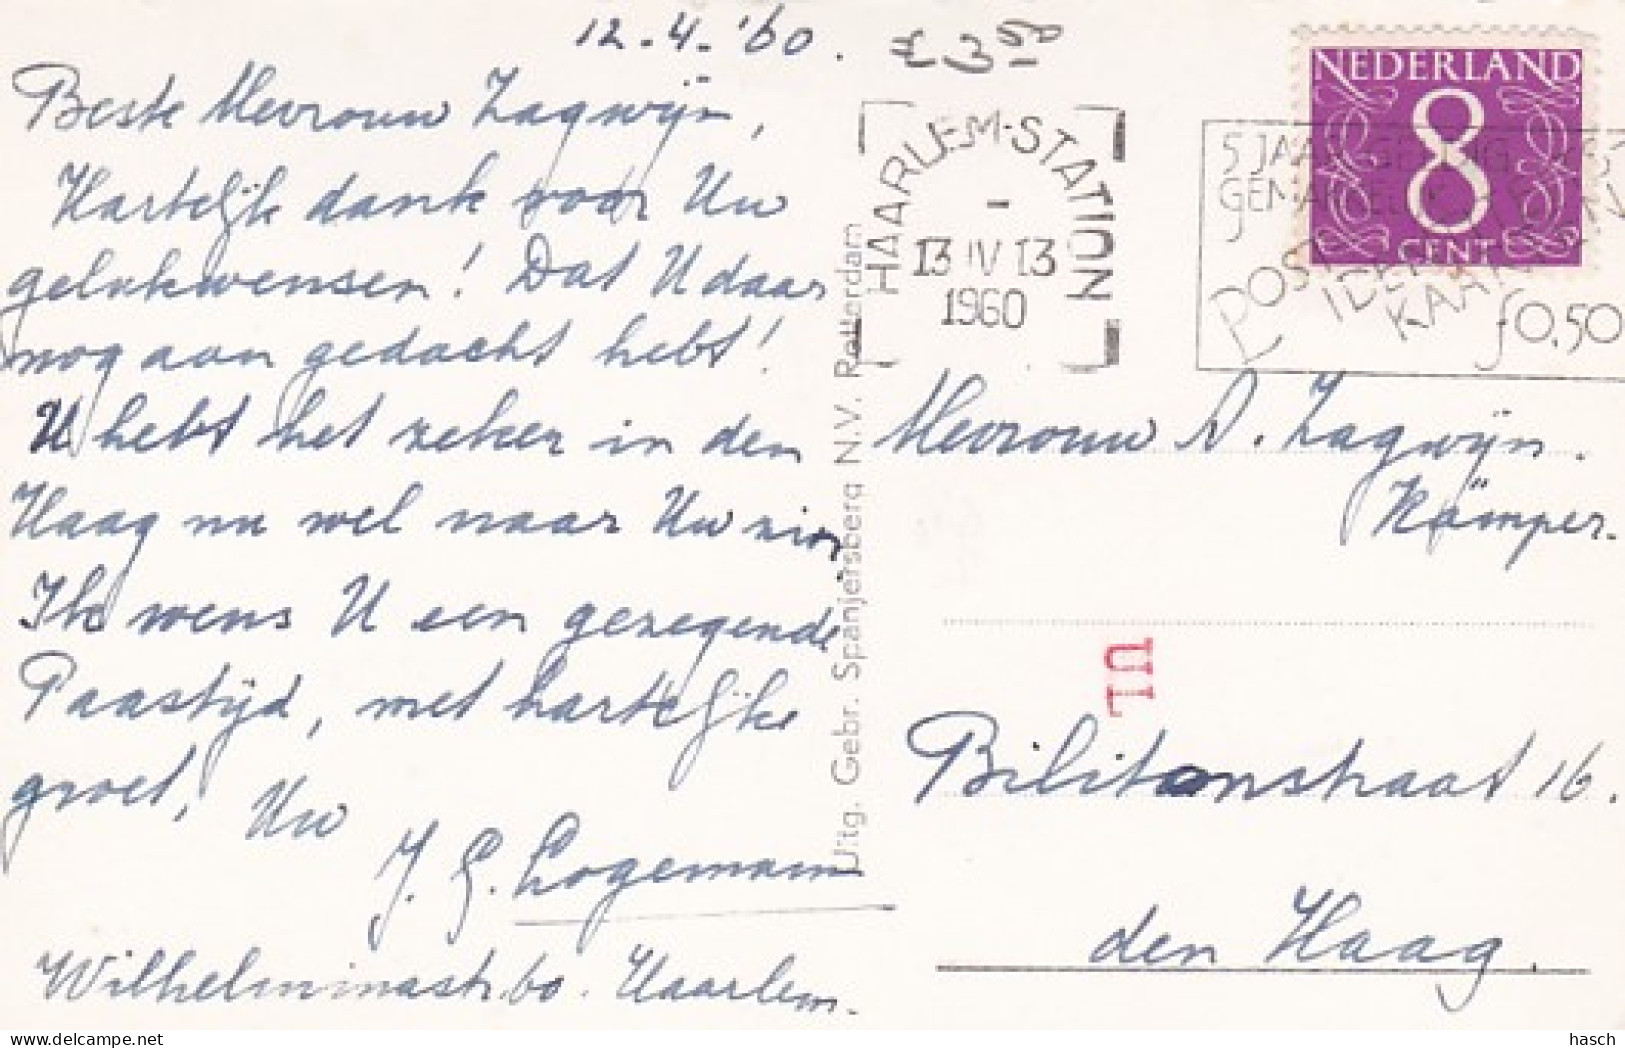 12-4-'60.
£ 3.50
Beste Mevrouw Zagwijn,
Hartelijk dank voor Uw
gelukwensen! Dat U daar
nog aan gedacht hebt!
U hebt het zeker in den
Haag nu wel naar Uw zin.
Ik wens U een gezegende
Paastijd, met hartelijke
groet, Uw
J. G. Logemann
Wilhelminastr. 60. Haarlem.
Uitg. Gebr. Spanjersberg N.V. Rotterdam
HAARLEM-STATION
13 IV 13
1960
NEDERLAND
8
CENT
5 JAAR GELDIG
POST
IDEN
KAART
f0,50
Mevrouw A. Zagwijn.
Kämper.
Bilitonstraat 16.
den Haag.
hasch
delcampe.net